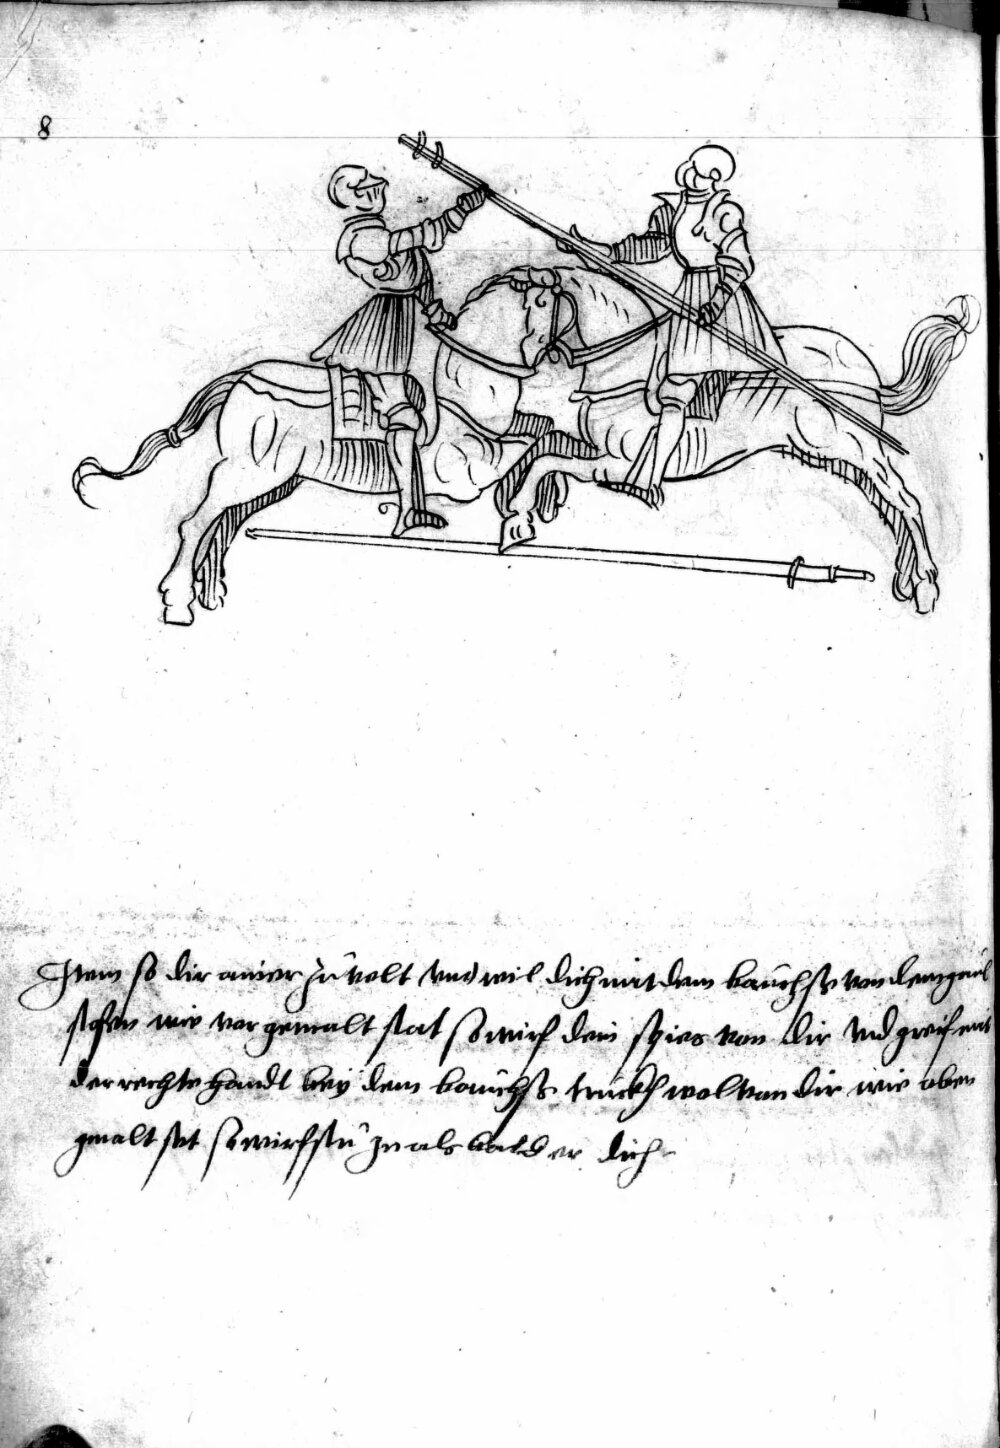 8
Item so dir ainer zů velt vnd wil dich mit dem von dem gaul
stosen wie vor gemalt stat so wirf dein spies von dir vnd greif mit
der rechte handt bey dem truckh wol von dir wie oben
gmalt stet so wirfstu In als bald er dich